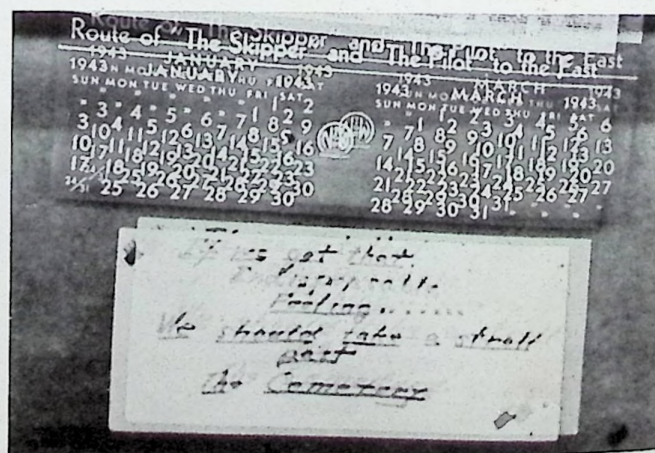 Route of The Skipper and The Pilot to the East
1943 JANUARY 1943
SUN MON TUE WED THU FRI SAT
1 2
3 4 5 6 7 8 9
10 11 12 13 14 15 16
17 18 19 20 21 22 23
24/31 25 26 27 28 29 30
1943 MARCH 1943
SUN MON TUE WED THU FRI SAT
1 2 3 4 5 6
7 8 9 10 11 12 13
14 15 16 17 18 19 20
21 22 23 24 25 26 27
28 29 30 31
If we get that
Indispensable
Feeling......
We should take a stroll
past
The Cemetery